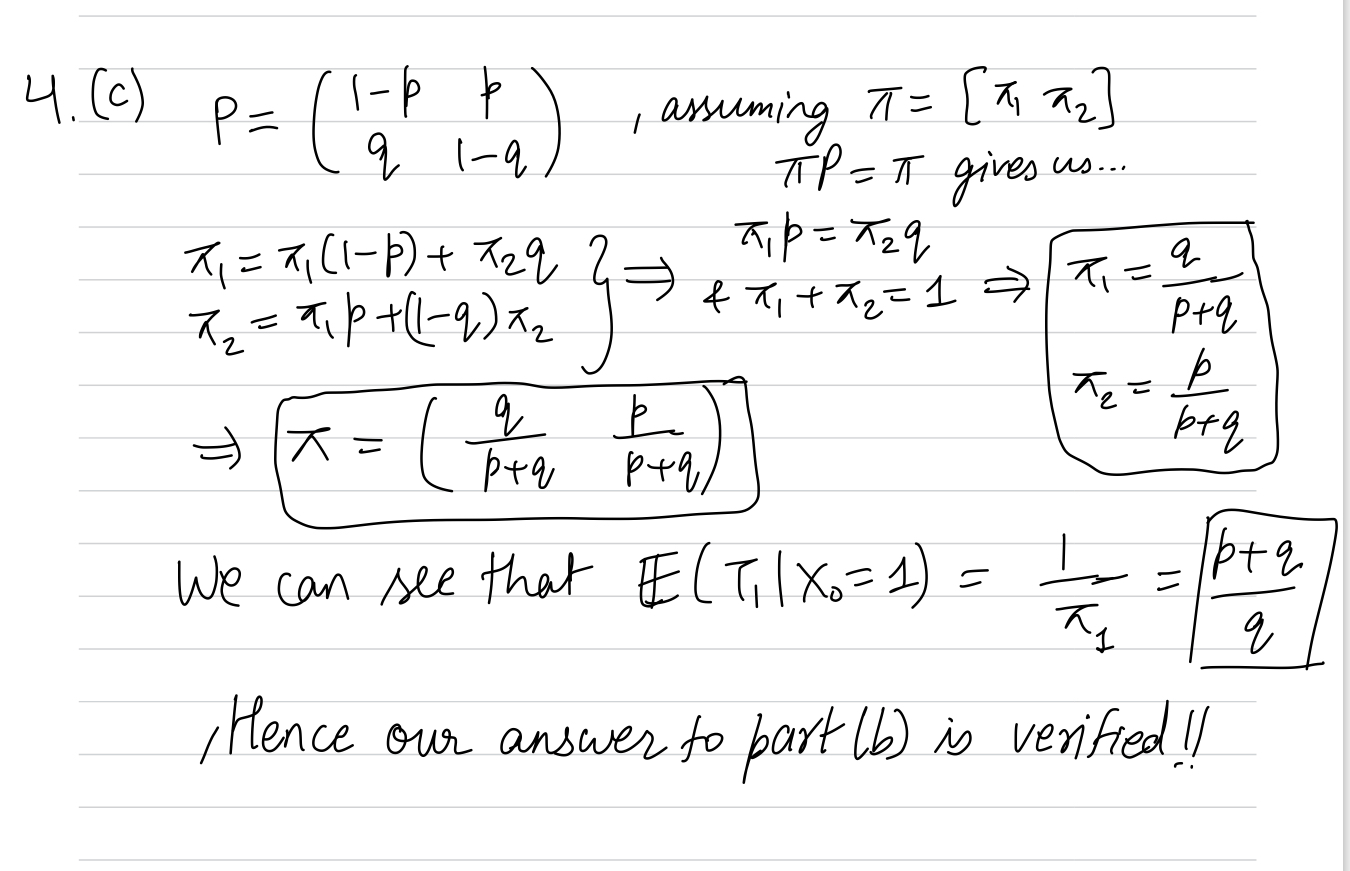 4.(c) P = ( 1-p p ; q 1-q ) , assuming π = [π₁ π₂]
πP = π gives us...
π₁ = π₁(1-p) + π₂q } ⇒ π₁p = π₂q
π₂ = π₁p + (1-q)π₂ & π₁ + π₂ = 1 ⇒ π₁ = q/(p+q)
π₂ = p/(p+q)
⇒ π = ( q/(p+q) p/(p+q) )
We can see that 𝔼(T₁|X₀=1) = 1/π₁ = (p+q)/q
, Hence our answer to part (b) is verified!!